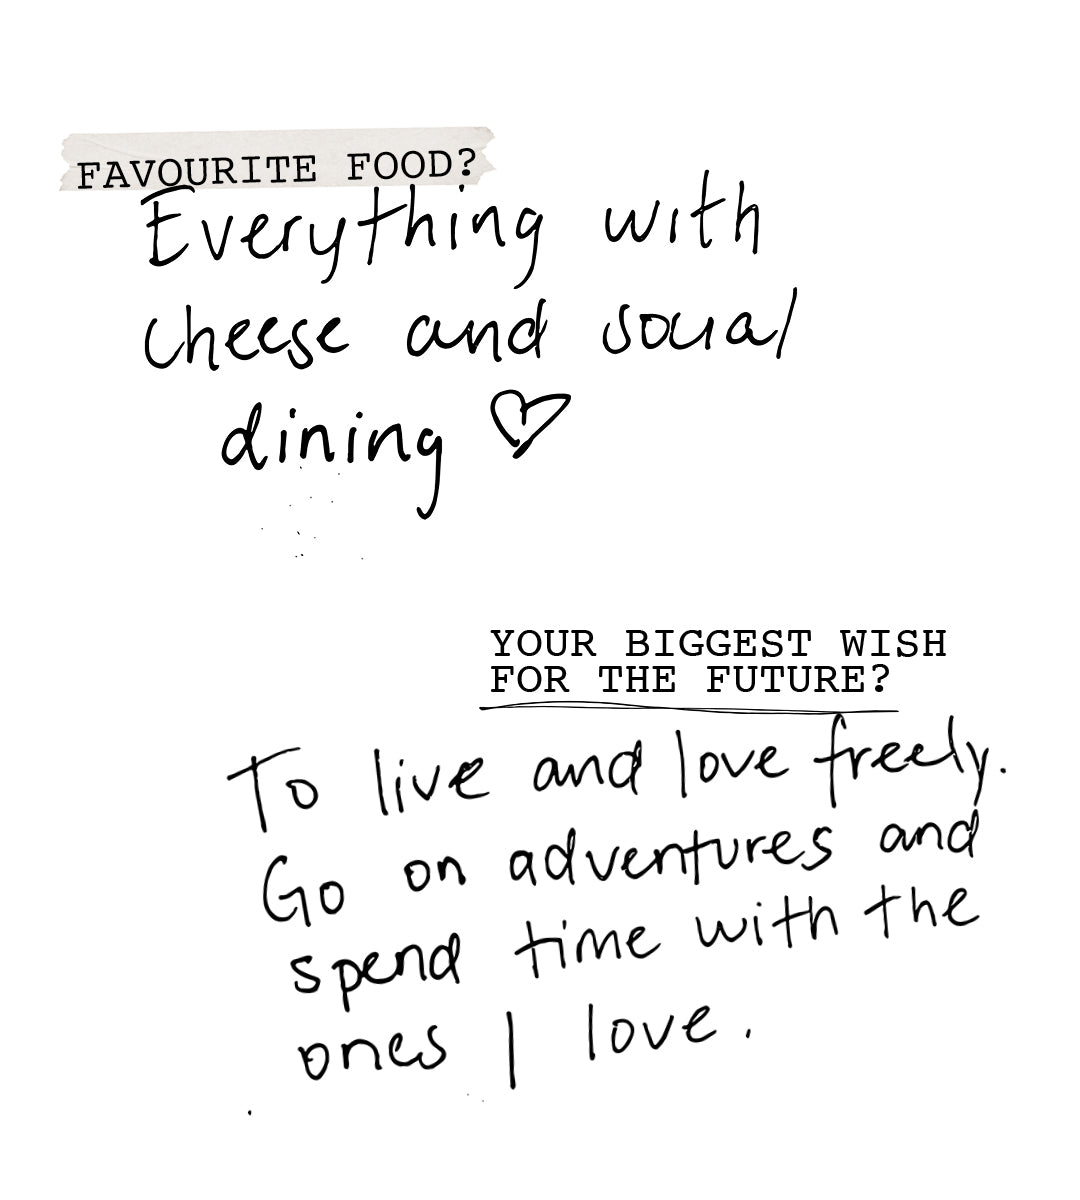 FAVOURITE FOOD?
Everything with
cheese and social
dining ♡
YOUR BIGGEST WISH
FOR THE FUTURE?
To live and love freely.
Go on adventures and
spend time with the
ones I love.